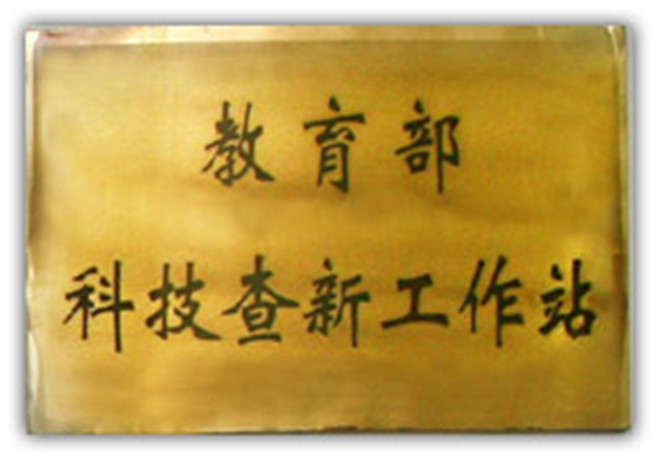 教育部
科技查新工作站